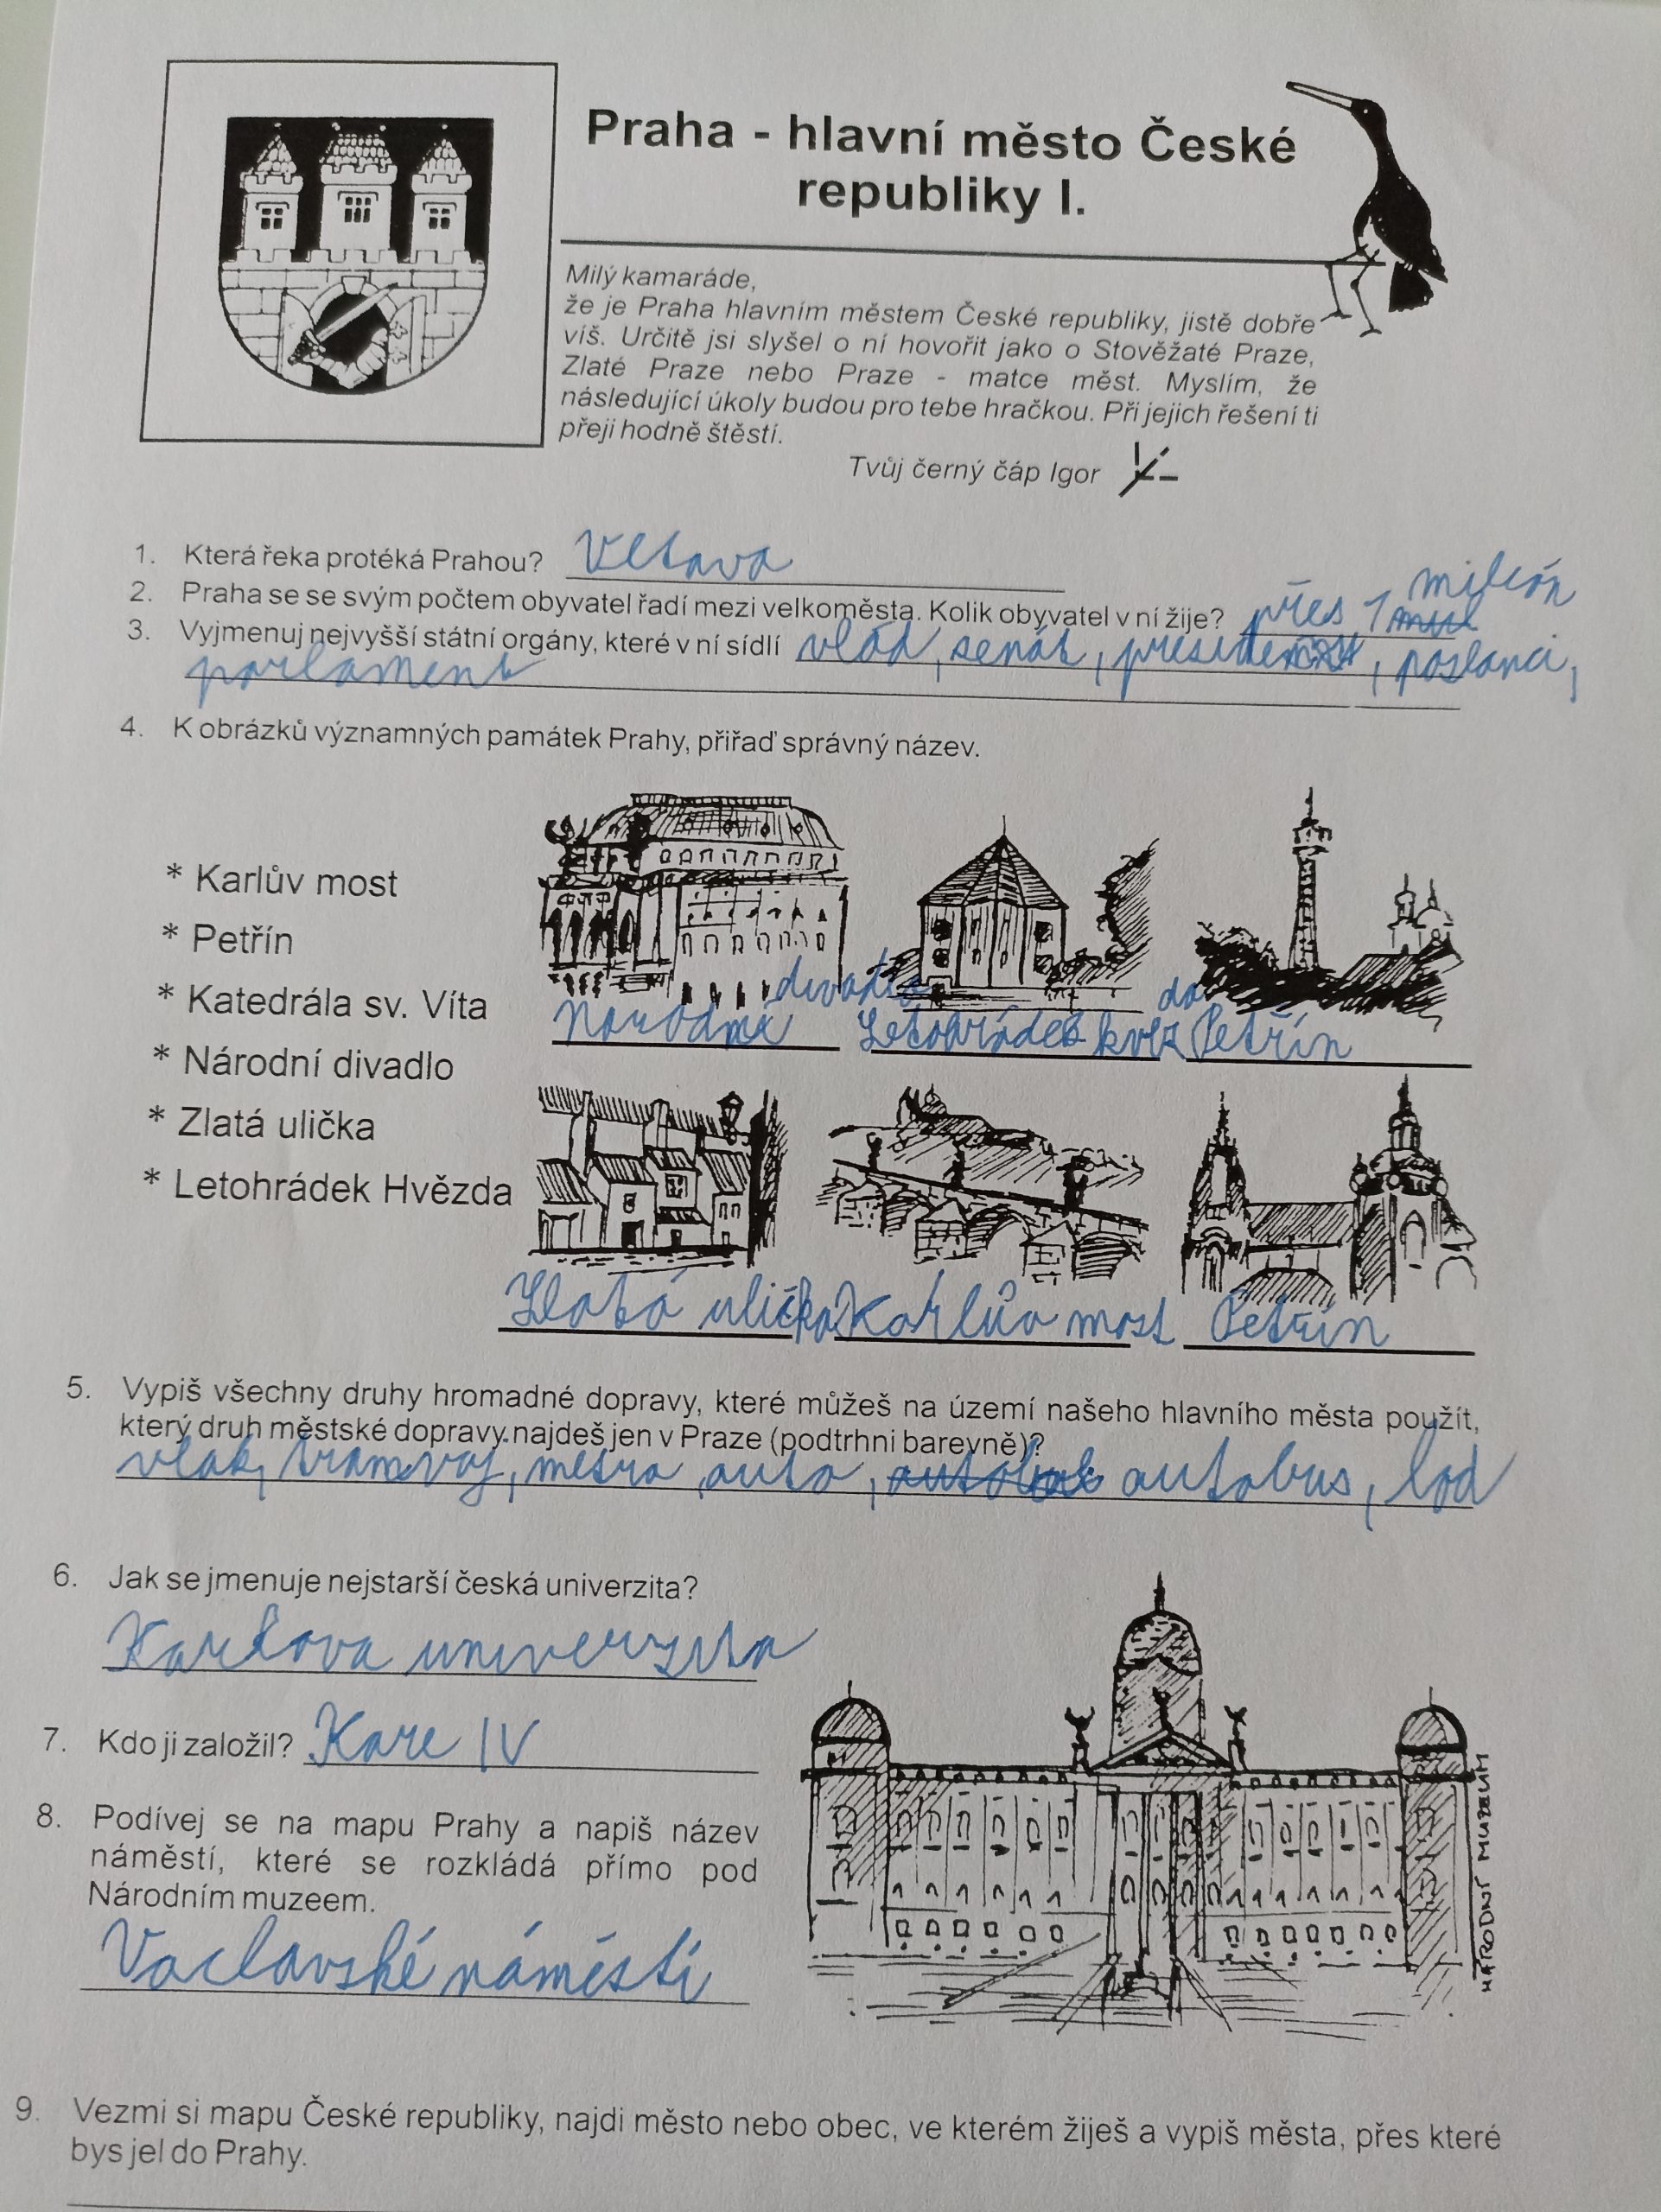 Praha - hlavní město České
republiky I.
Milý kamaráde,
že je Praha hlavním městem České republiky, jistě dobře
víš. Určitě jsi slyšel o ní hovořit jako o Stověžaté Praze,
Zlaté Praze nebo Praze - matce měst. Myslím, že
následující úkoly budou pro tebe hračkou. Při jejich řešení ti
přeji hodně štěstí.
Tvůj černý čáp Igor
1. Která řeka protéká Prahou? Vltava
2. Praha se se svým počtem obyvatel řadí mezi velkoměsta. Kolik obyvatel v ní žije? přes 1 milión
3. Vyjmenuj nejvyšší státní orgány, které v ní sídlí vlád, senát, president, poslanci,
parlament
4. K obrázků významných památek Prahy, přiřaď správný název.
* Karlův most
* Petřín
* Katedrála sv. Víta
* Národní divadlo
* Zlatá ulička
* Letohrádek Hvězda
Národní divadlo
Letohrádek hvězda
Petřín
Zlatá ulička
Karlův most
Petřín
5. Vypiš všechny druhy hromadné dopravy, které můžeš na území našeho hlavního města použít,
který druh městské dopravy najdeš jen v Praze (podtrhni barevně)?
vlak, tramvaj, metro, auto, autobus, lod
6. Jak se jmenuje nejstarší česká univerzita?
Karlova univerzita
7. Kdo ji založil? Karel IV
8. Podívej se na mapu Prahy a napiš název
náměstí, které se rozkládá přímo pod
Národním muzeem.
Vaclavské náměstí
NÁRODNÍ MUZEUM
9. Vezmi si mapu České republiky, najdi město nebo obec, ve kterém žiješ a vypiš města, přes které
bys jel do Prahy.